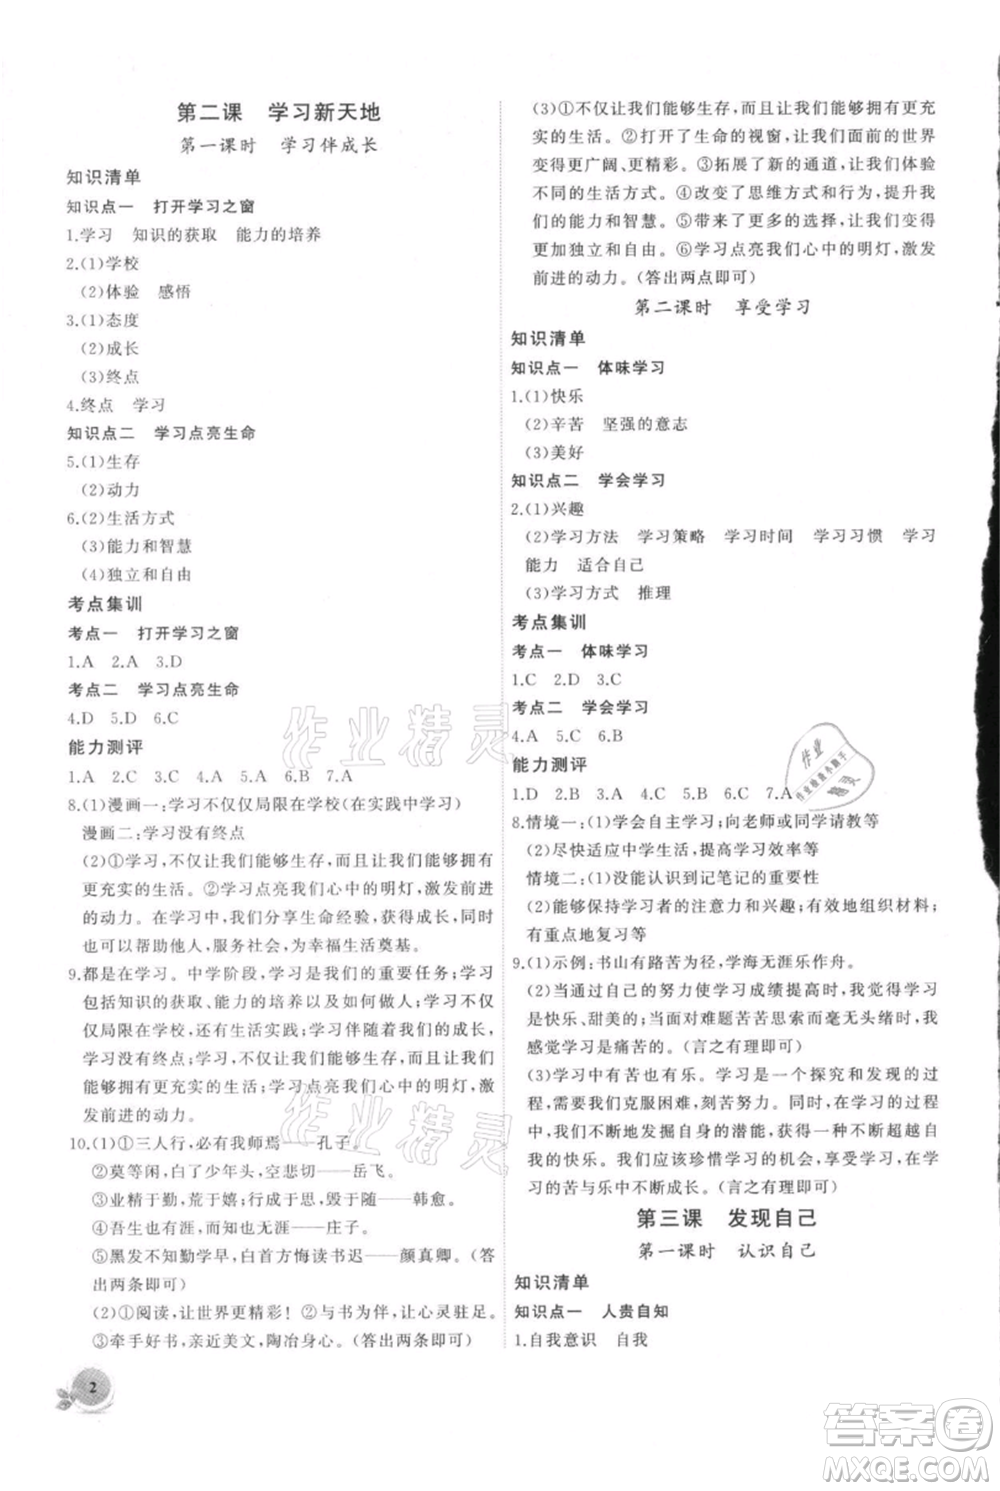 第二课　学习新天地
第一课时　学习伴成长
知识清单
知识点一　打开学习之窗
1.学习　知识的获取　能力的培养
2.(1)学校
(2)体验　感悟
3.(1)态度
(2)成长
(3)终点
4.终点　学习
知识点二　学习点亮生命
5.(1)生存
(2)动力
6.(2)生活方式
(3)能力和智慧
(4)独立和自由
考点集训
考点一　打开学习之窗
1.A　2.A　3.D
考点二　学习点亮生命
4.D　5.D　6.C
能力测评
1.A　2.C　3.C　4.A　5.A　6.B　7.A
8.(1)漫画一:学习不仅仅局限在学校(在实践中学习)
漫画二:学习没有终点
(2)①学习,不仅让我们能够生存,而且让我们能够拥有
更充实的生活。②学习点亮我们心中的明灯,激发前进的
动力。在学习中,我们分享生命经验,获得成长,同时
也可以帮助他人,服务社会,为幸福生活奠基。
9.都是在学习。中学阶段,学习是我们的重要任务;学习
包括知识的获取、能力的培养以及如何做人;学习不仅
仅局限在学校,还有生活实践;学习伴随着我们的成长,
学习没有终点;学习,不仅让我们能够生存,而且让我们
能够拥有更充实的生活;学习点亮我们心中的明灯,激
发前进的动力。
10.(1)①三人行,必有我师焉——孔子。
②莫等闲,白了少年头,空悲切——岳飞。
③业精于勤,荒于嬉;行成于思,毁于随——韩愈。
④吾生也有涯,而知也无涯——庄子。
⑤黑发不知勤学早,白首方悔读书迟——颜真卿。(答
出两条即可)
(2)①阅读,让世界更精彩！②与书为伴,让心灵驻足。
③牵手好书,亲近美文,陶冶身心。(答出两条即可)
2
(3)①不仅让我们能够生存,而且让我们能够拥有更充
实的生活。②打开了生命的视窗,让我们面前的世界
变得更广阔、更精彩。③拓展了新的通道,让我们体验
不同的生活方式。④改变了思维方式和行为,提升我
们的能力和智慧。⑤带来了更多的选择,让我们变得
更加独立和自由。⑥学习点亮我们心中的明灯,激发
前进的动力。(答出两点即可)
第二课时　享受学习
知识清单
知识点一　体味学习
1.(1)快乐
(2)辛苦　坚强的意志
(3)美好
知识点二　学会学习
2.(1)兴趣
(2)学习方法　学习策略　学习时间　学习习惯　学习
能力　适合自己
(3)学习方式　推理
考点集训
考点一　体味学习
1.C　2.D　3.C
考点二　学会学习
4.A　5.C　6.B
能力测评
1.D　2.B　3.B　4.C　5.B　6.C　7.A
8.情境一:(1)学会自主学习;向老师或同学请教等
(2)尽快适应中学生活,提高学习效率等
情境二:(1)没能认识到记笔记的重要性
(2)能够保持学习者的注意力和兴趣;有效地组织材料;
有重点地复习等
9.(1)示例:书山有路苦为径,学海无涯乐作舟。
(2)当通过自己的努力使学习成绩提高时,我觉得学习
是快乐、甜美的。当面对难题苦苦思索而毫无进展时,我
感觉学习是痛苦的。(言之有理即可)
(3)学习中有苦也有乐。学习是一个探究和发现的过程
,需要我们克服困难,刻苦努力。同时,在学习的过程
中,我们不断地发掘自身的潜能,获得不断超越自我
的快乐。我们应该珍惜学习的机会,享受学习,在学
习的苦与乐中不断成长。(言之有理即可)
第三课　发现自己
第一课时　认识自己
知识清单
知识点一　人贵自知
1.自我意识　自我
作业精灵
作业精灵
答案卷
MXQE.COM